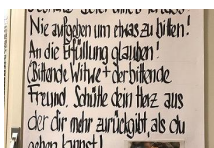 Nie aufgeben um etwas zu bitten!
An die Erfüllung glauben!
(Bittende Witwe + der bittende
Freund, Schütte dein Herz aus
der dir mehr zurückgibt, als du
geben kannst!